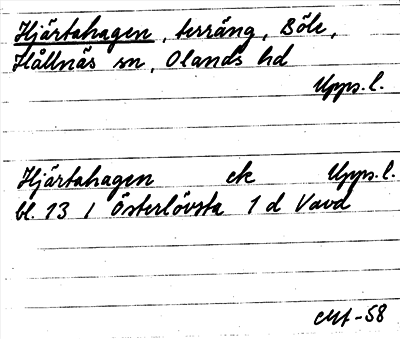 Hjärtahagen, terräng, Böle,
Hållnäs sn, Olands hd
Upps. l.
Hjärtahagen ek Upps. l.
bl. 13 / Österlövsta 1 d Vavd
-58